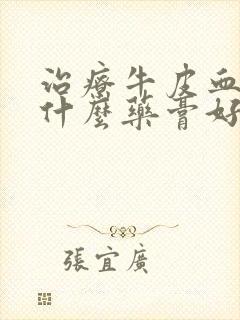 治療牛皮血
什麼藥膏好
張宜廣